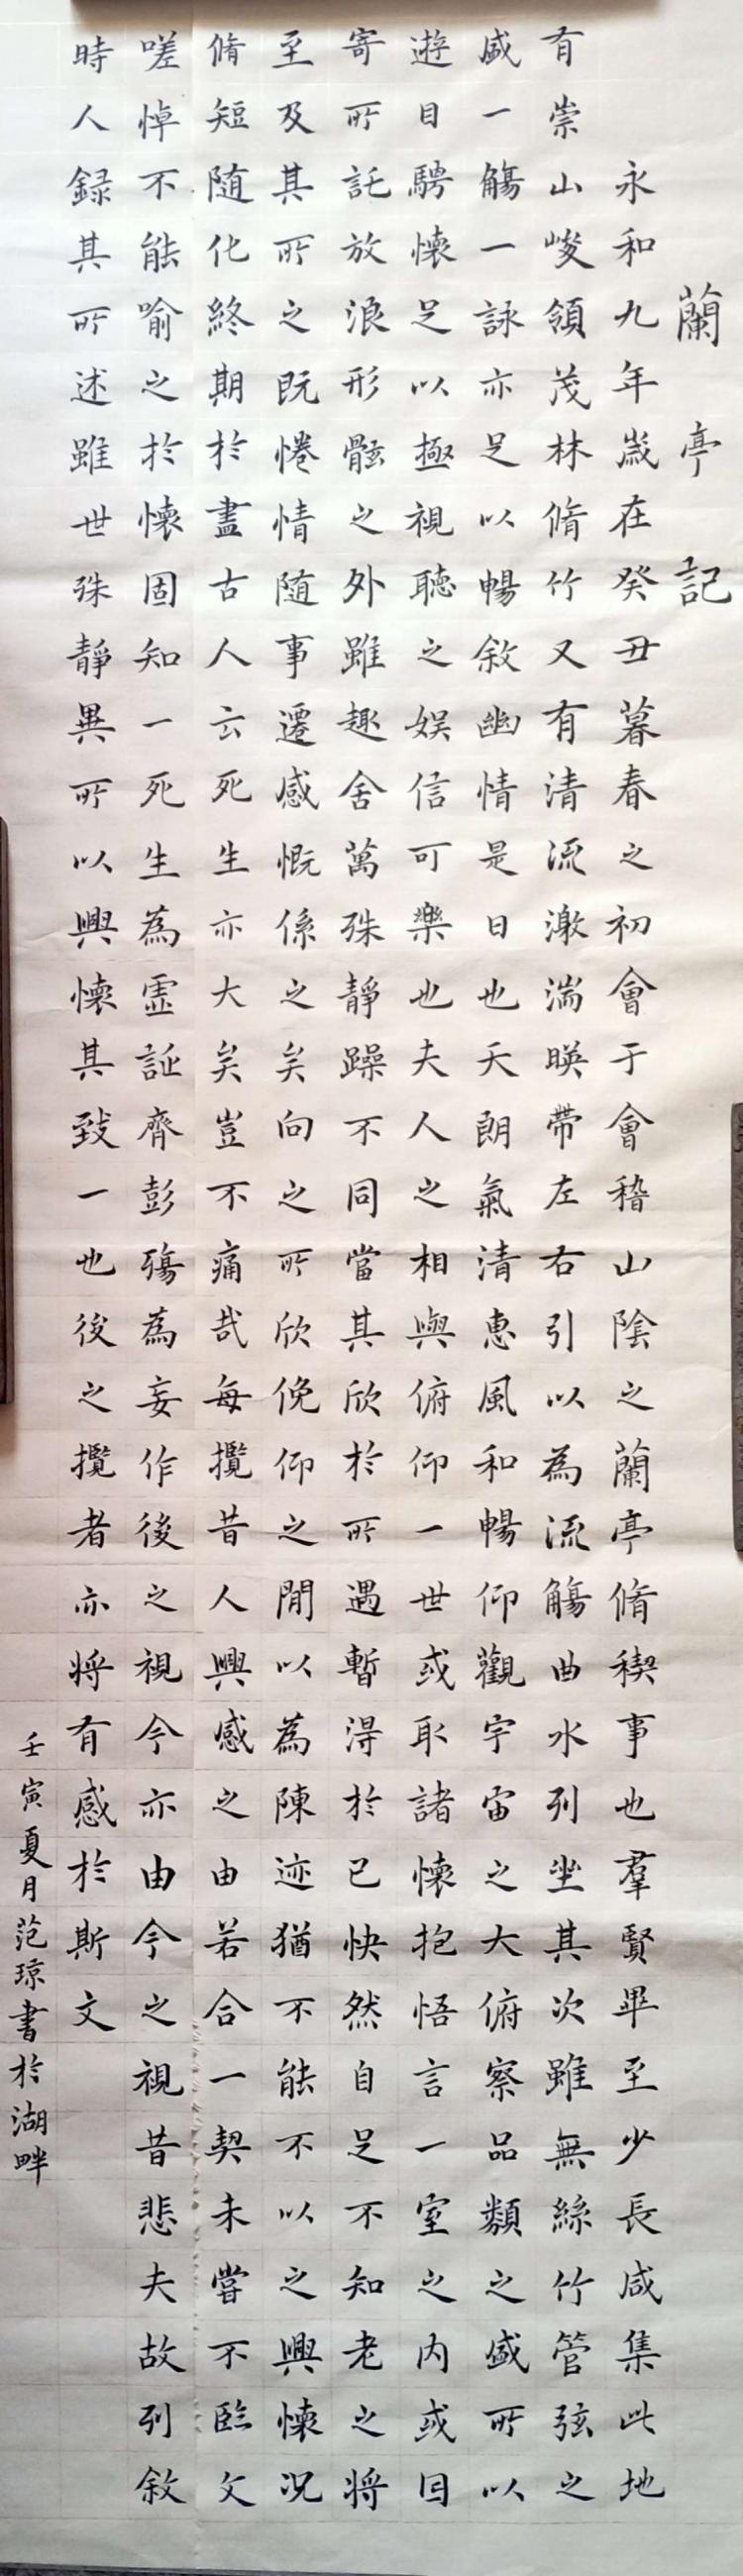 蘭亭記
永和九年歲在癸丑暮春之初會于會稽山陰之蘭亭脩稧事也羣賢畢至少長咸集此地
有崇山峻領茂林脩竹又有清流激湍暎帶左右引以為流觴曲水列坐其次雖無絲竹管弦之
盛一觴一詠亦足以暢敘幽情是日也天朗氣清惠風和暢仰觀宇宙之大俯察品類之盛所以
遊目騁懷足以極視聽之娛信可樂也夫人之相與俯仰一世或取諸懷抱悟言一室之內或因
寄所託放浪形骸之外雖趣舍萬殊靜躁不同當其欣於所遇暫得於己快然自足不知老之將
至及其所之既惓情隨事遷感慨係之矣向之所欣俛仰之閒以為陳迹猶不能不以之興懷況
脩短隨化終期於盡古人云死生亦大矣豈不痛哉每攬昔人興感之由若合一契未嘗不臨文
嗟悼不能喻之於懷固知一死生為虛誕齊彭殤為妄作後之視今亦由今之視昔悲夫故列敘
時人錄其所述雖世殊靜異所以興懷其致一也後之攬者亦將有感於斯文
壬寅夏月范琼書於湖畔